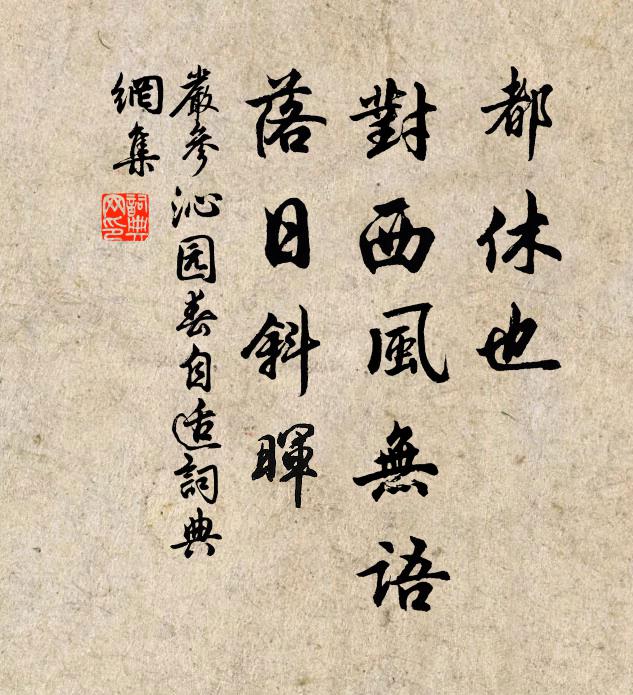 都休也
對西風無語
落日斜暉
嚴參沁园春自适詞典
網集
詞典網印